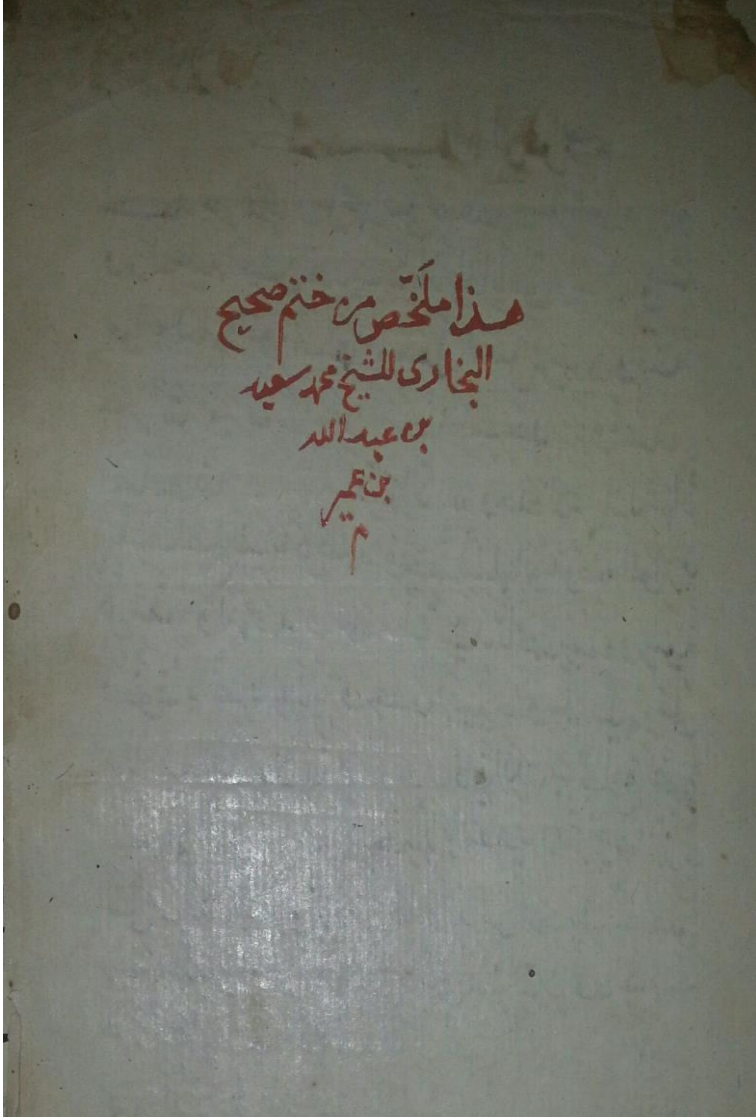 هذا ملَخّص من ختم صحيح
البخارى للشيخ محمد سعيد
بن عبد الله
بن عمير
م